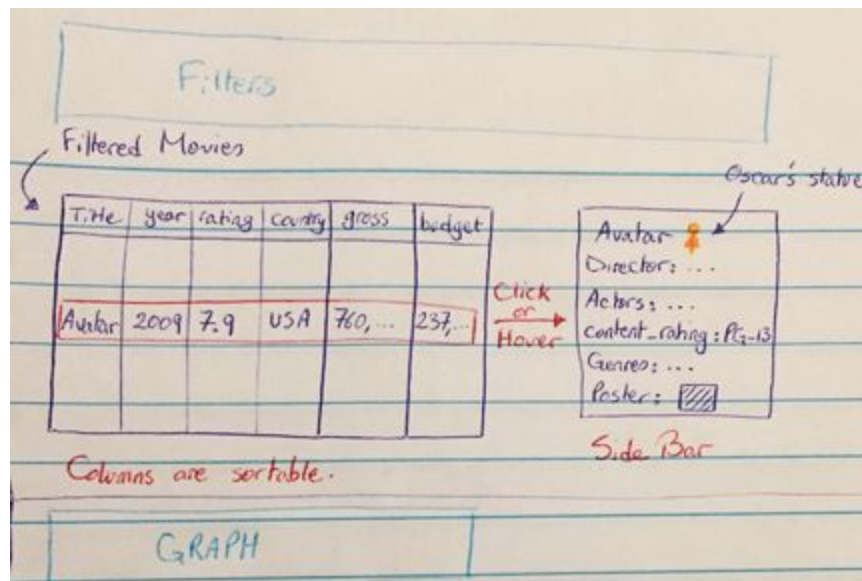 Filters
Filtered Movies
Oscar's statue
Title year rating country gross budget
Avatar 2009 7.9 USA 760,... 237,...
Click
or
Hover
Avatar
Director: ...
Actors: ...
content_rating: PG-13
Genres: ...
Poster:
Side Bar
Columns are sortable.
GRAPH